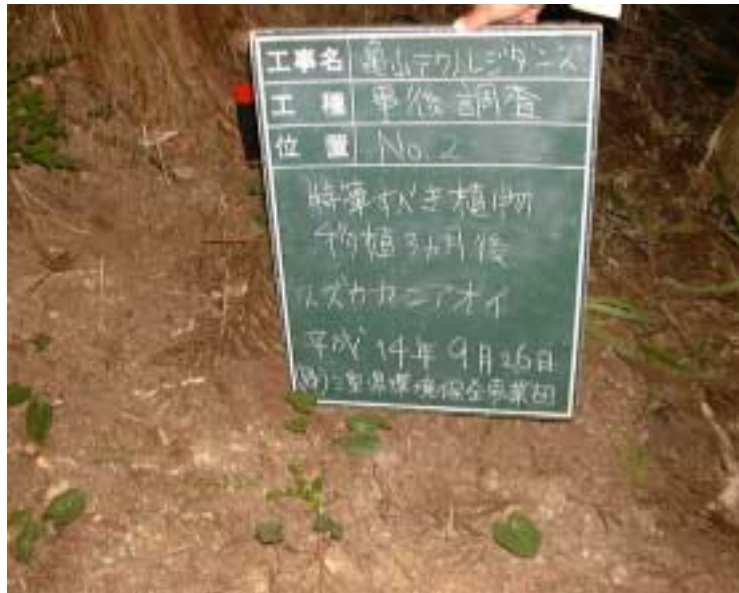 工事名 亀山テクノレジデンス
工種 事後調査
位置 No.2
特筆すべき植物
移植3ヵ月後
スズカカンアオイ
平成14年9月26日
(財)三重県環境保全事業団